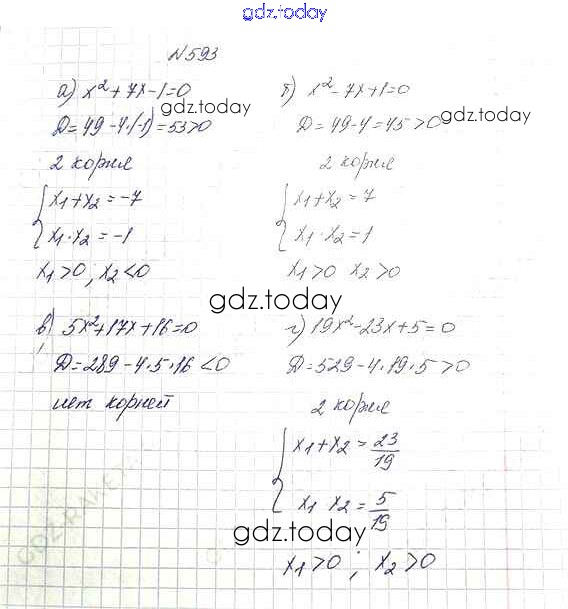 gdz.today
N 593
а) x² + 7x - 1 = 0
gdz.today
D = 49 - 4·(-1) = 53 > 0
2 корня
x₁ + x₂ = -7
x₁·x₂ = -1
x₁ > 0 ; x₂ < 0
б) x² - 7x + 1 = 0
gdz.today
D = 49 - 4 = 45 > 0
2 корня
x₁ + x₂ = 7
x₁·x₂ = 1
x₁ > 0 x₂ > 0
gdz.today
в) 5x² + 17x + 16 = 0
D = 289 - 4·5·16 < 0
нет корней
г) 19x² - 23x + 5 = 0
D = 529 - 4·19·5 > 0
2 корня
x₁ + x₂ = 23/19
x₁ x₂ = 5/19
gdz.today
x₁ > 0 ; x₂ > 0